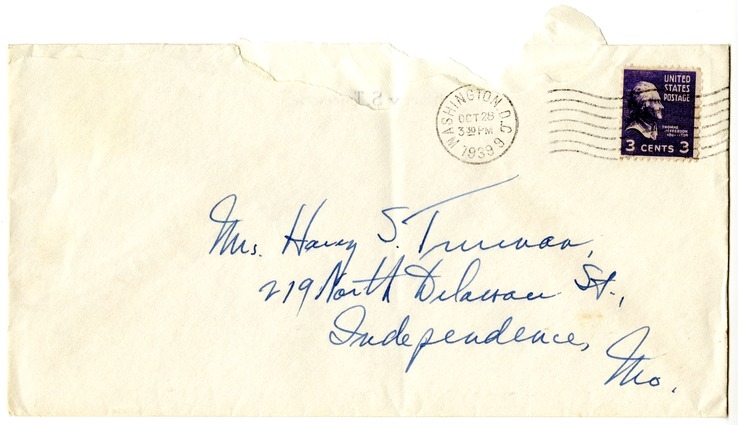 WASHINGTON D.C. 9
OCT 28
3 30 PM
1939
UNITED
STATES
POSTAGE
THOMAS
JEFFERSON
3 CENTS 3
Mrs. Harry S. Truman,
219 North Delaware St.,
Independence,
Mo.